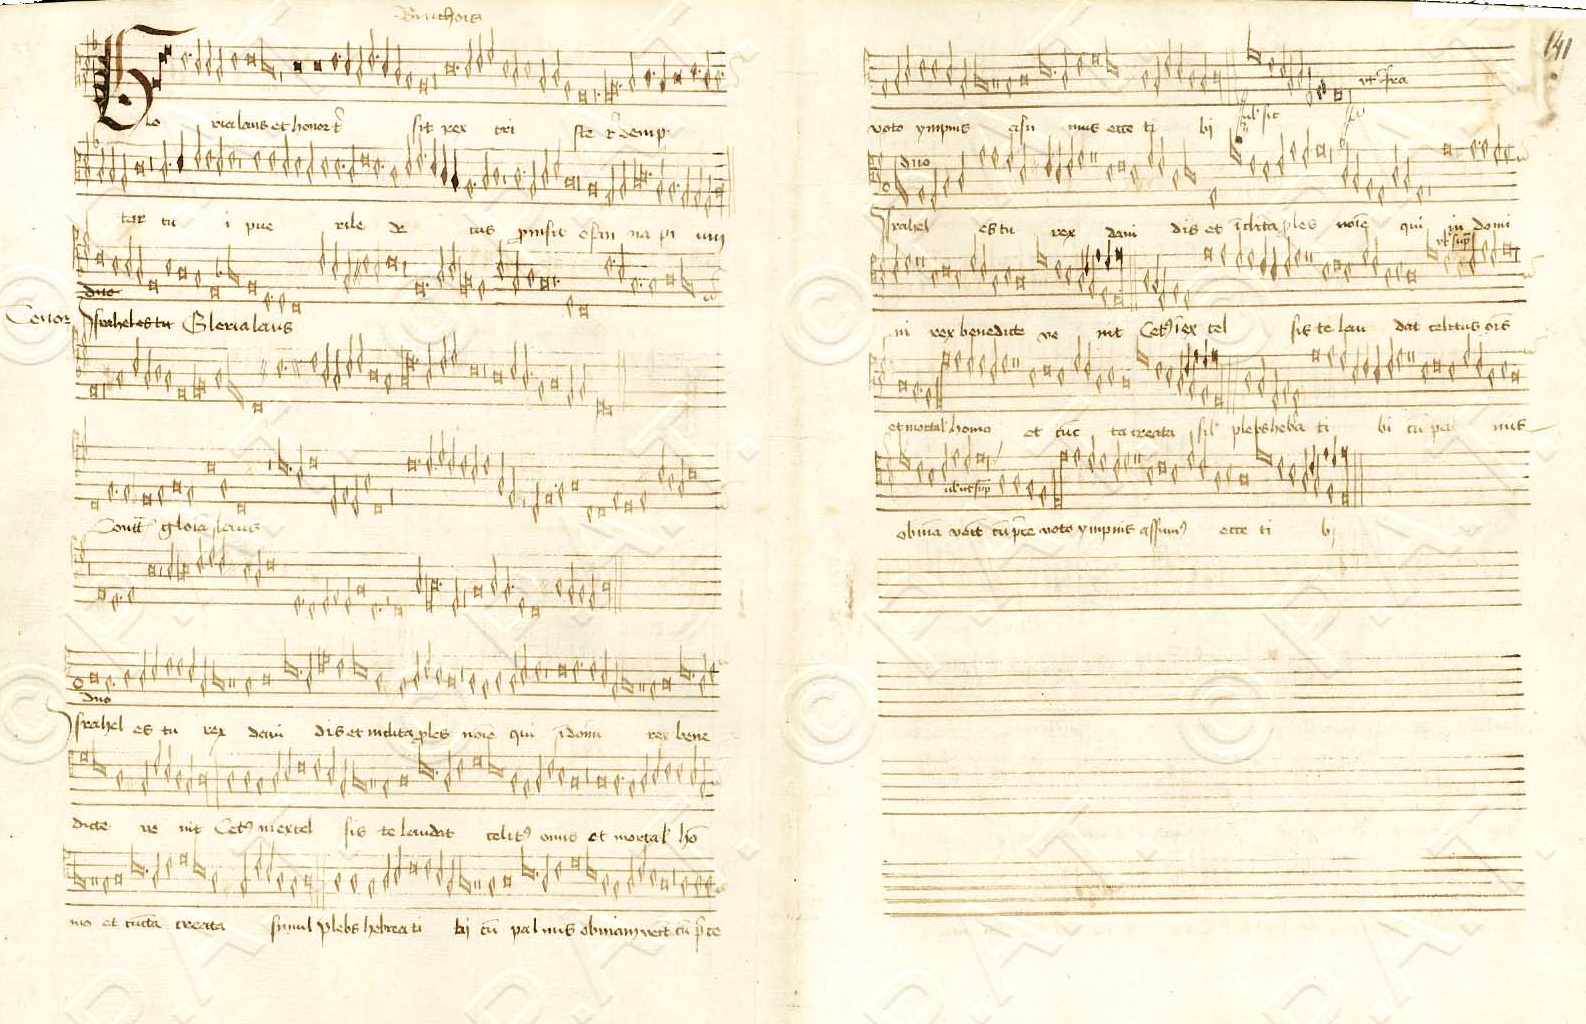 Binchois
Glo ria laus et honor t sit rex cri ste rdemp
tor cu i pue rile de cus promsit osan na pi um
duo
Tenor Israhel es tu Gloria laus
Contr gloria laus
duo
Israhel es tu rex davi dis et inclita ples noie qui i domi rex bene
dicte ve nit Cet9 in excel sis te laudat celit9 omnis et mortal ho
mo et cuncta creata simul plebs hebrea ti bi cu pal mis obviam venit cu pre
141
voto ympnis assu mus ecce ti bi
ut sra
duo
Israhel es tu rex davi dis et iclita ples noie qui in domi
ut sup
ni rex benedicte ve nit Cet9 i ex cel sis te lau dat celitus ois
et mortal homo et cuc ta creata sil plebs hebra ti bi cu pal mis
obvia venit cu pre voto ympnis assum9 ecce ti bi